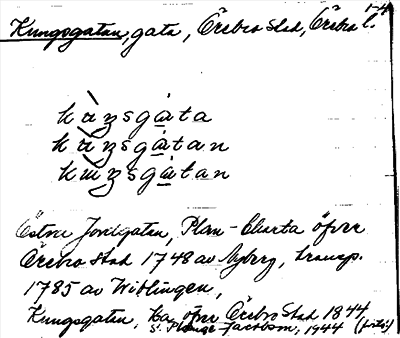 Kungsgatan, gata, Örebro stad, Örebro l.
kùŋsgàta
kùŋsgàtan
kùŋsgàtan
Östra Jordgatan, Plan-Charta öfver
Örebro stad 1748 av Nyberg, transp.
1785 av Wiblingen,
Kungsgatan, Ka öfver Örebro Stad 1844
Jacobson, 1944